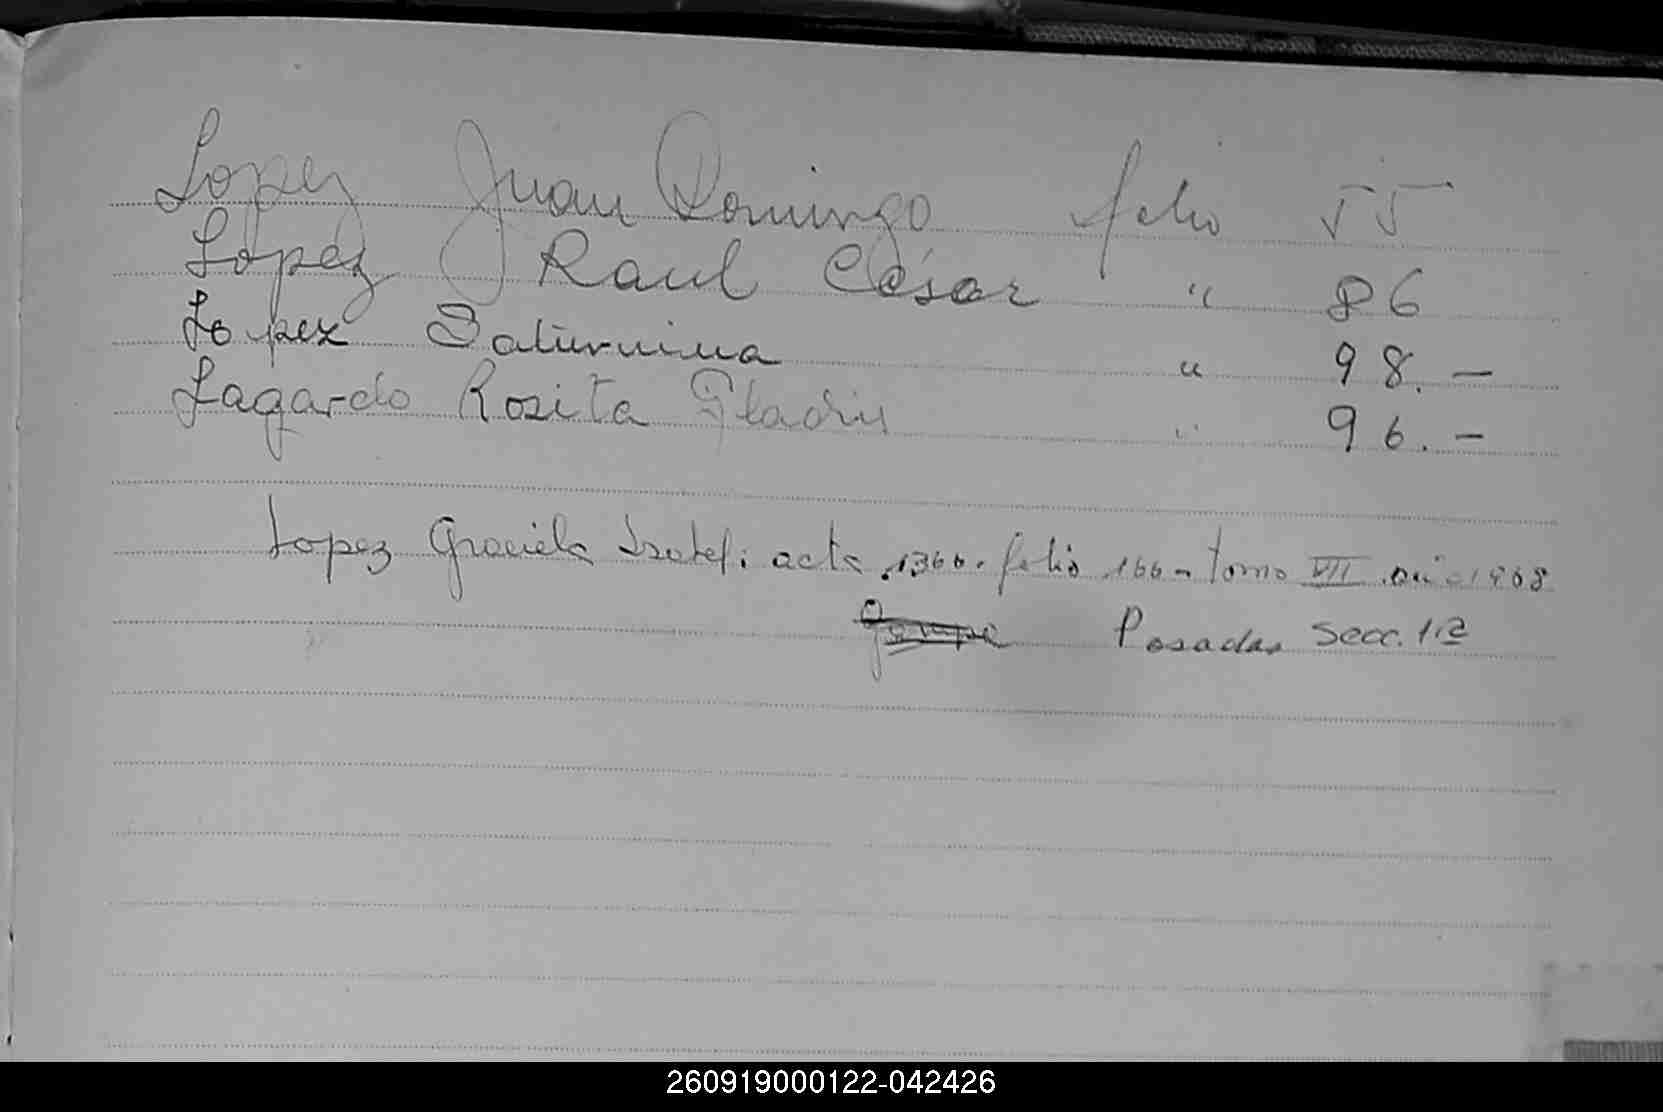 Lopez Juan Domingo folio 55
Lopez Raul César " 86
Lopez Saturnina " 98.-
Lagardo Rosita Gladis " 96.-
Lopez Graciela Isabel: acta 1366. folio 166- tomo VII año 1968
Posadas Secc. 1ª
260919000122-042426